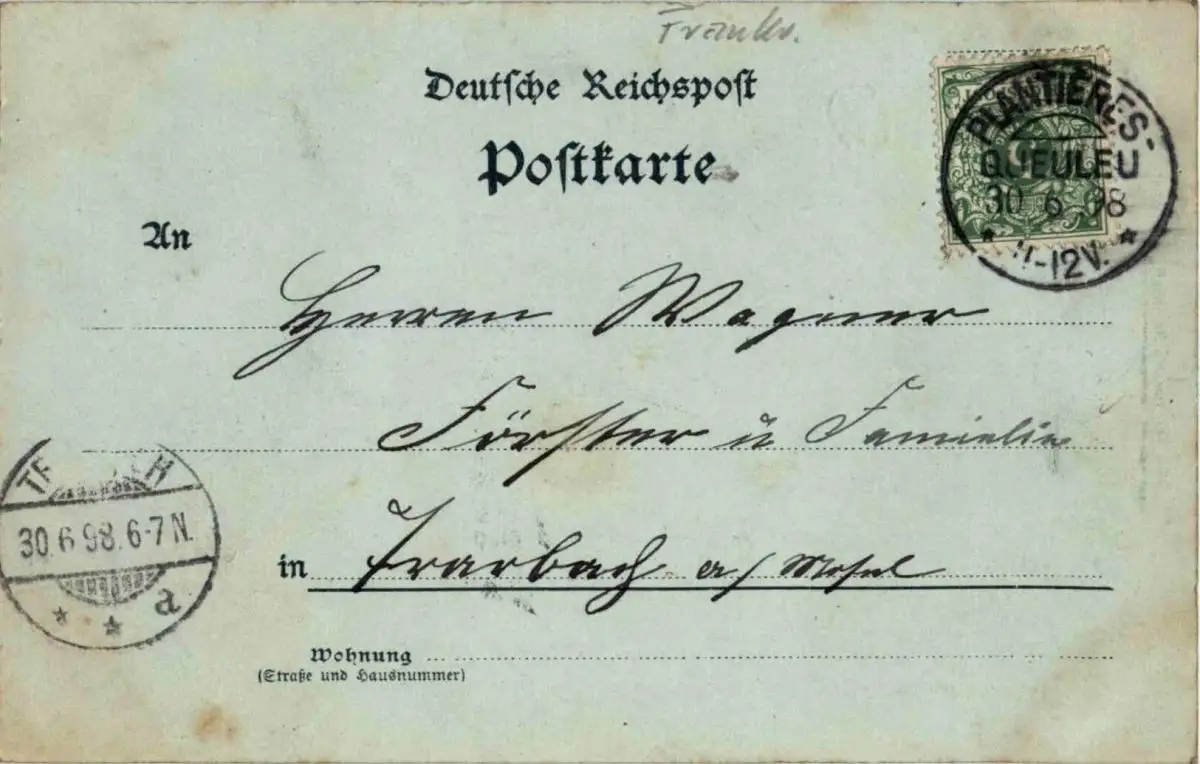 Frankr.
Deutsche Reichspost
Postkarte
PLANTIÈRES-
QUEULEU
30 6 98
11-12V.
An
Herren Wagner
Förster u Familie
30.6.98.6-7N.
a
in Trarbach a/Mosel
Wohnung
(Straße und Hausnummer)